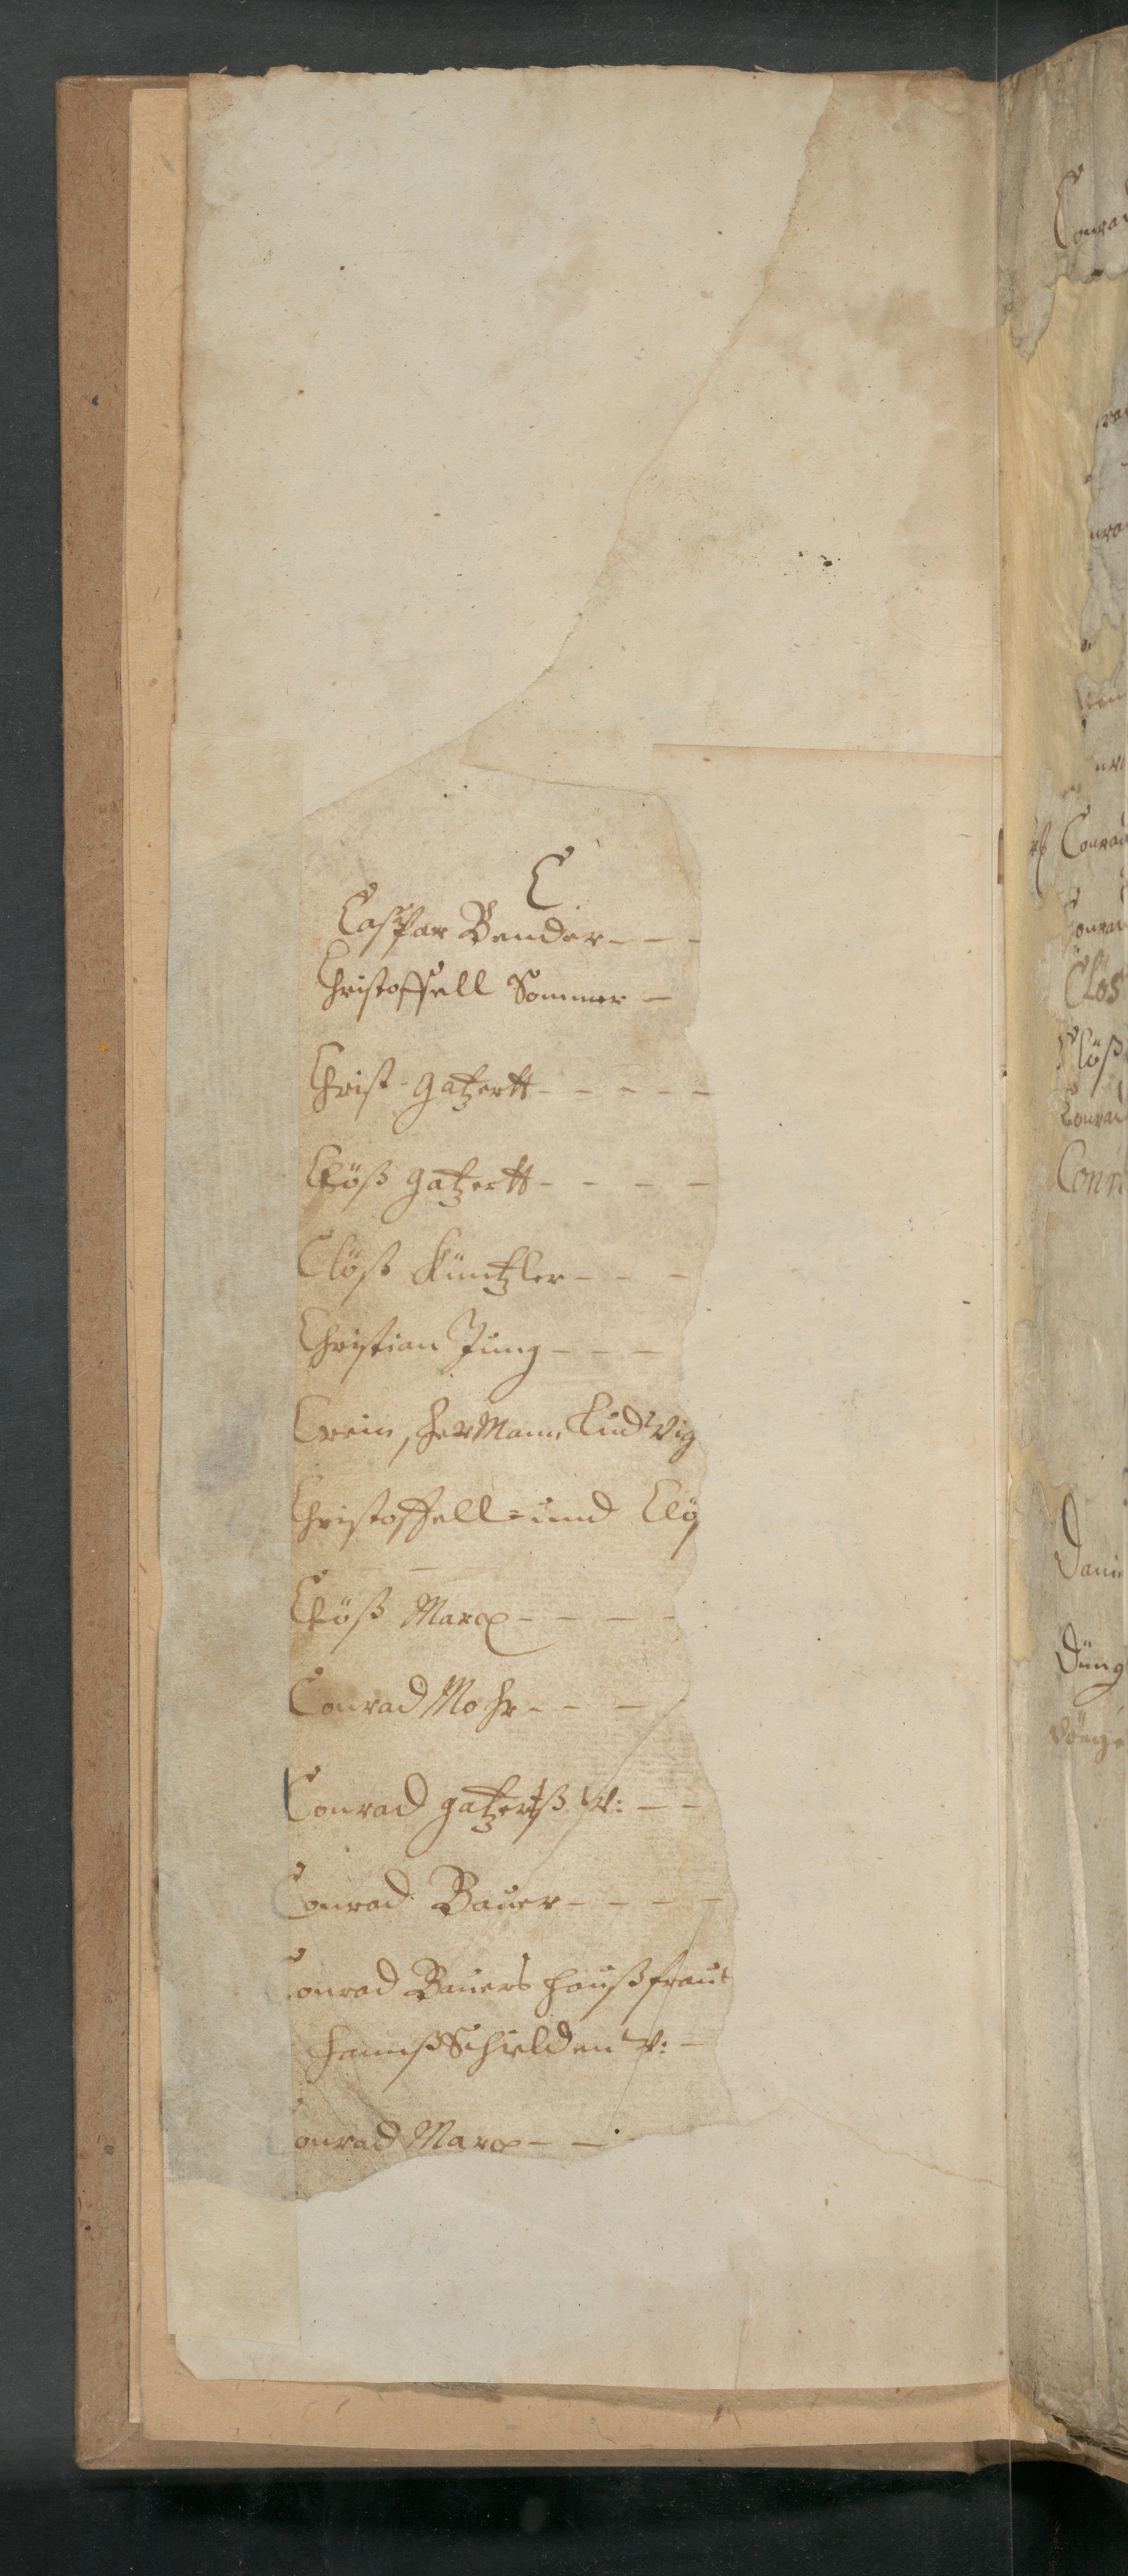 C
Caspar Bender - - -
Christoffell Sommer -
Christ-gatzertt - - - - -
Clöß gatzertt - - - -
Clöß Küntzler - - -
Christian Jung - - -
Crein, HerMann Ludwig
Christoffell = und Clö
Clöß Marx - - - -
Conrad Mohr - - -
Conrad gatzertß W: - -
Conrad Bauer - - - -
onrad Bauers haußfrau
Hannß Schilden W: -
onrad Marx - -
Conrad
Conrad
Clos
Clöß
Conrad
Conr
Dani
Düng